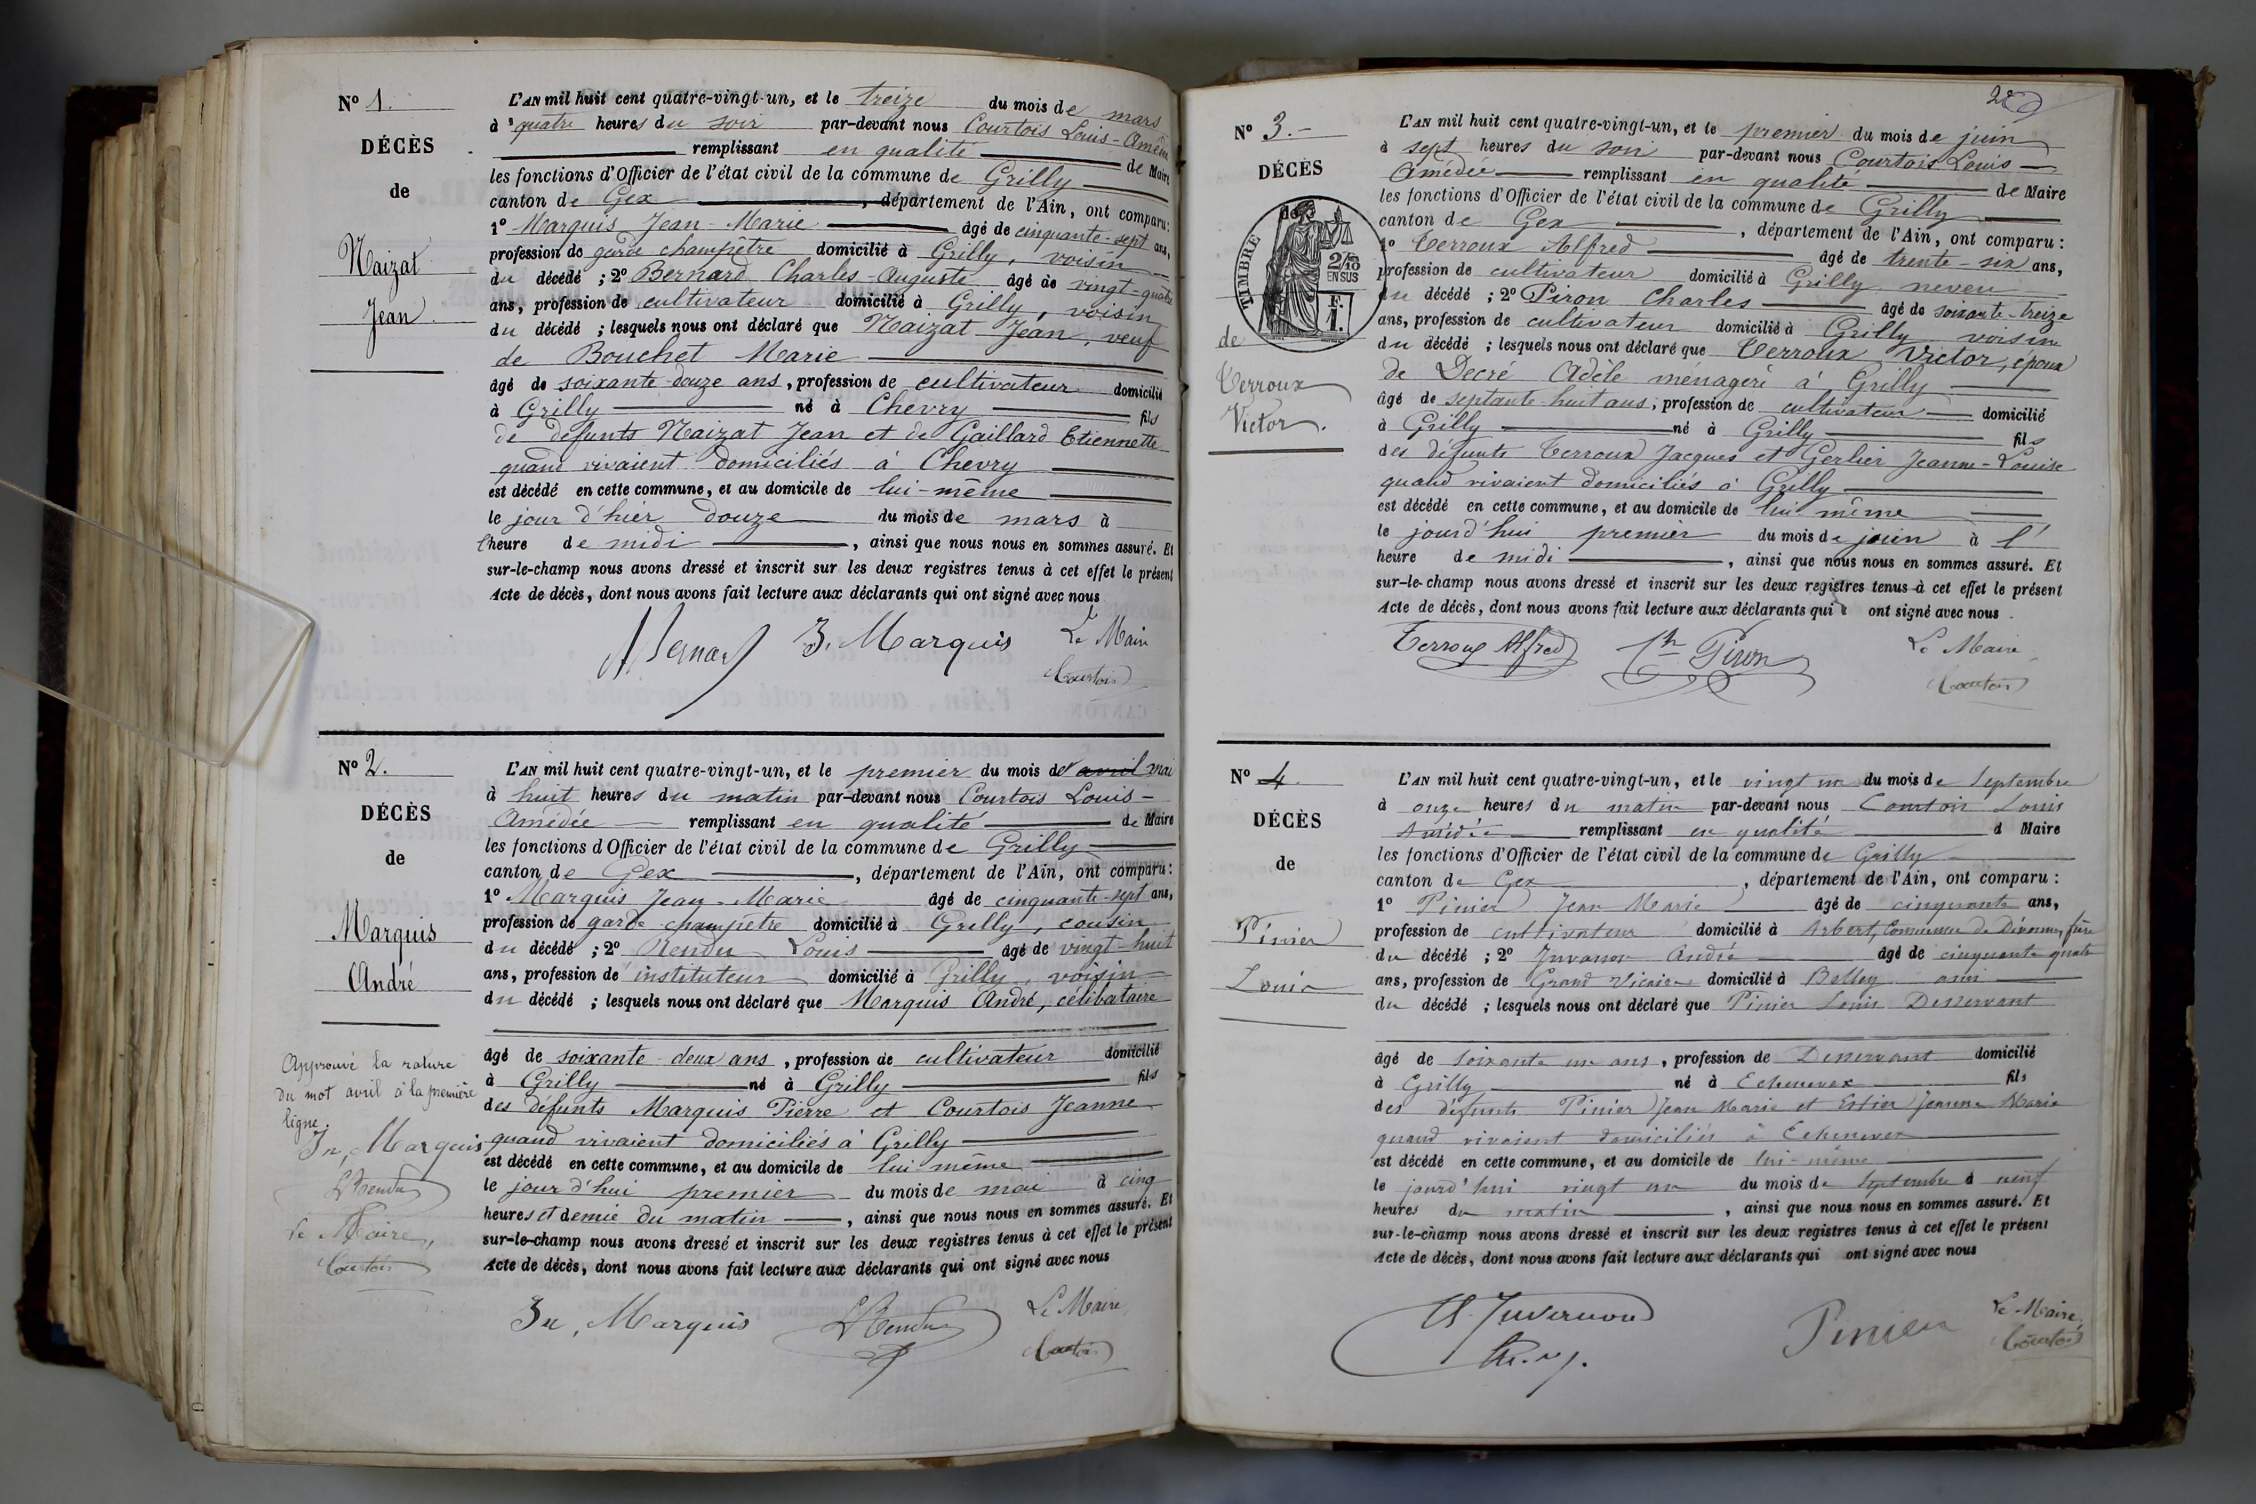 N° 1.
DÉCÈS
de
Naizat
Jean.
L'AN mil huit cent quatre-vingt-un, et le treize du mois de mars
à quatre heures du soir par-devant nous Courtois Louis-Amédée
remplissant en qualité de Maire
les fonctions d'Officier de l'état civil de la commune de Grilly
canton de Gex, département de l'Ain, ont comparu:
1° Marquis Jean-Marie âgé de cinquante-sept ans,
profession de garde champêtre domicilié à Grilly, voisin
du décédé ; 2° Bernard Charles-Auguste âgé de vingt-quatre
ans, profession de cultivateur domicilié à Grilly, voisin
du décédé ; lesquels nous ont déclaré que Naizat Jean, veuf
de Bouchet Marie
âgé de soixante-douze ans, profession de cultivateur domicilié
à Grilly né à Chevry fils
de défunts Naizat Jean et de Gaillard Etiennette
quand vivaient domiciliés à Chevry
est décédé en cette commune, et au domicile de lui-même
le jour d'hier douze du mois de mars à
l'heure de midi, ainsi que nous nous en sommes assuré. Et
sur-le-champ nous avons dressé et inscrit sur les deux registres tenus à cet effet le présent
Acte de décès, dont nous avons fait lecture aux déclarants qui ont signé avec nous
Bernard J. Marquis Le Maire
Courtois
N° 2.
DÉCÈS
de
Marquis
André
L'AN mil huit cent quatre-vingt-un, et le premier du mois d'avril mai
à huit heures du matin par-devant nous Courtois Louis-
Amédée remplissant en qualité de Maire
les fonctions d'Officier de l'état civil de la commune de Grilly
canton de Gex, département de l'Ain, ont comparu:
1° Marquis Jean-Marie âgé de cinquante-sept ans,
profession de garde champêtre domicilié à Grilly, cousin
du décédé ; 2° Rendu Louis âgé de vingt-huit
ans, profession de instituteur domicilié à Grilly, voisin
du décédé ; lesquels nous ont déclaré que Marquis André, célibataire
âgé de soixante-deux ans, profession de cultivateur domicilié
à Grilly né à Grilly fils
des défunts Marquis Pierre et Courtois Jeanne
quand vivaient domiciliés à Grilly
est décédé en cette commune, et au domicile de lui même
le jour d'hui premier du mois de mai à cinq
heures et demie du matin, ainsi que nous nous en sommes assuré. Et
sur-le-champ nous avons dressé et inscrit sur les deux registres tenus à cet effet le présent
Acte de décès, dont nous avons fait lecture aux déclarants qui ont signé avec nous
Approuvé la rature
du mot avril à la première
ligne.
Marquis
L Rendu
Le Maire,
Courtois
Marquis L Rendu Le Maire,
Courtois
N° 3.-
DÉCÈS
de
TIMBRE
2/10
EN SUS
F.
1.
de
Terroux
Victor.
L'AN mil huit cent quatre-vingt-un, et le premier du mois de juin
à sept heures du soir par-devant nous Courtois Louis-
Amédée remplissant en qualité de Maire
les fonctions d'Officier de l'état civil de la commune de Grilly
canton de Gex, département de l'Ain, ont comparu:
1° Terroux Alfred âgé de trente-six ans,
profession de cultivateur domicilié à Grilly neveu
du décédé ; 2° Piron Charles âgé de soixante-treize
ans, profession de cultivateur domicilié à Grilly voisin
du décédé ; lesquels nous ont déclaré que Terroux Victor, époux
de Decré Adèle ménagère à Grilly
âgé de septante-huit ans, profession de cultivateur domicilié
à Grilly né à Grilly fils
des défunts Terroux Jacques et Gerlier Jeanne-Louise
quand vivaient domiciliés à Grilly
est décédé en cette commune, et au domicile de lui même
le jourd'hui premier du mois de juin à l'
heure de midi, ainsi que nous nous en sommes assuré. Et
sur-le-champ nous avons dressé et inscrit sur les deux registres tenus à cet effet le présent
Acte de décès, dont nous avons fait lecture aux déclarants qui ont signé avec nous.
Terroux Alfred Ch Piron Le Maire,
Courtois
N° 4.
DÉCÈS
de
Pinier
Louis
L'AN mil huit cent quatre-vingt-un, et le vingt un du mois de Septembre
à onze heures du matin par-devant nous Courtois Louis
Amédée remplissant en qualité d Maire
les fonctions d'Officier de l'état civil de la commune de Grilly
canton de Gex, département de l'Ain, ont comparu:
1° Pinier Jean Marie âgé de cinquante ans,
profession de cultivateur domicilié à Arbert, Commune de Divonne, frère
du décédé ; 2° Juvanon André âgé de cinquante quatre
ans, profession de Grand Vicaire domicilié à Belley ami
du décédé ; lesquels nous ont déclaré que Pinier Louis Desservant
âgé de soixante un ans, profession de Desservant domicilié
à Grilly né à Echenevex fils
des défunts Pinier Jean Marie et Estier Jeanne Marie
quand vivaient domiciliés à Echenevex
est décédé en cette commune, et au domicile de lui-même
le jourd'hui vingt un du mois de Septembre à neuf
heures du matin, ainsi que nous nous en sommes assuré. Et
sur-le-champ nous avons dressé et inscrit sur les deux registres tenus à cet effet le présent
Acte de décès, dont nous avons fait lecture aux déclarants qui ont signé avec nous
Pinier Le Maire,
Courtois